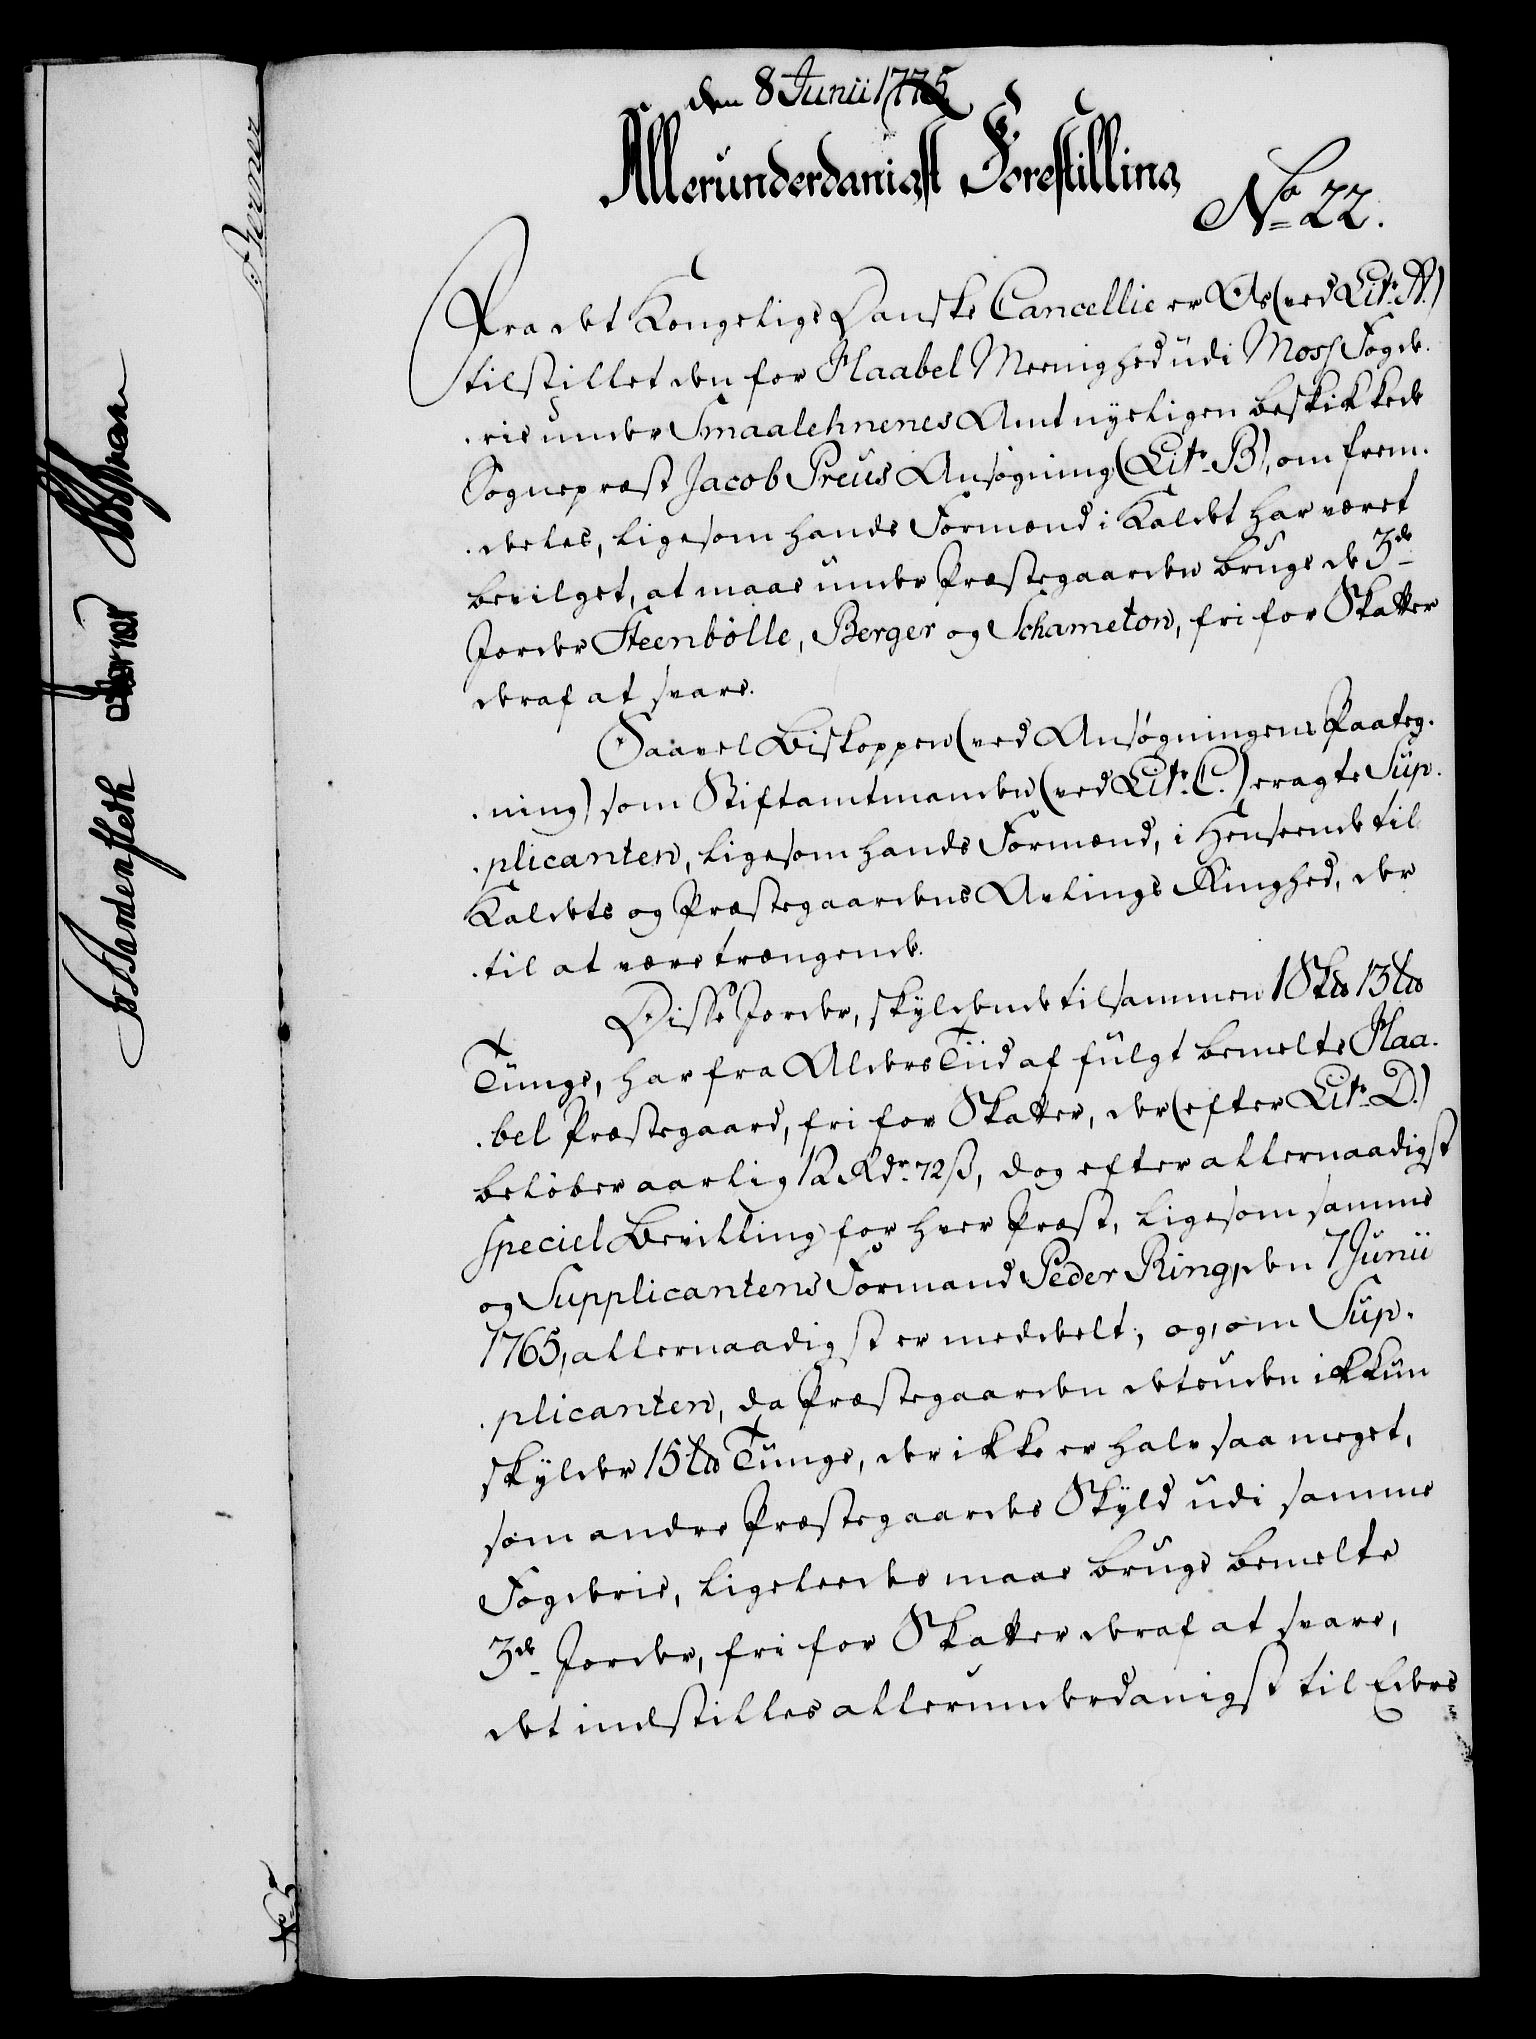 den 8 Junii 1775
Allerunderdanigst Forestilling
No 22.
Fra det Kongelige Danske Cancellie er Os (ved Litr. A.)
tilstillet den for Haabel Meenighed udi Moss Fogde-
-rie under Smaalehnenes Amt nyeligen beskikkede
Sognepræst Jacob Preus Ansøgning (Litr. B), om frem-
-deles, ligesom hands Formænd i Kaldet har været
bevilget, at maae under Præstegaarden bruge de 3de
Jorder Steenbølle, Berger og Schameton, fri for Skatter
deraf at svare.
Saavel Biskoppen (ved Ansøgningens Paateg-
-ning) som Stiftamtmanden (ved Litr. C.) eragte Sup-
-plicanten, ligesom hands Formænd, i Henseende til
Kaldets og Præstegaardens Avlings Ringhed, der
-til at være trængende.
Disse Jorder, skyldende tilsammen 1 Skd 13 Ld
Tunge, har fra Alders Tiid af fulgt bemelte Haa-
-bel Præstegaard, fri for Skatter, der (efter Litr. D.)
beløber aarlig 12 Rdr. 72 ß, dog efter allernaadigst
speciel Bevilling for hver Præst, ligesom samme
og Supplicantens Formand Peder Ring, den 7 Junii
1765, allernaadigst er meddeelt; og, om Sup-
-plicanten, da Præstegaarden desuden ikkun
skylder 15 Ld Tunge, der ikke er halv saa meget,
som andre Præstegaardes Skyld udi samme
Fogderie, ligeleedes maae bruge bemelte
3de Jorder, fri for Skatter deraf at svare,
det indstilles allerunderdanigst til Eders